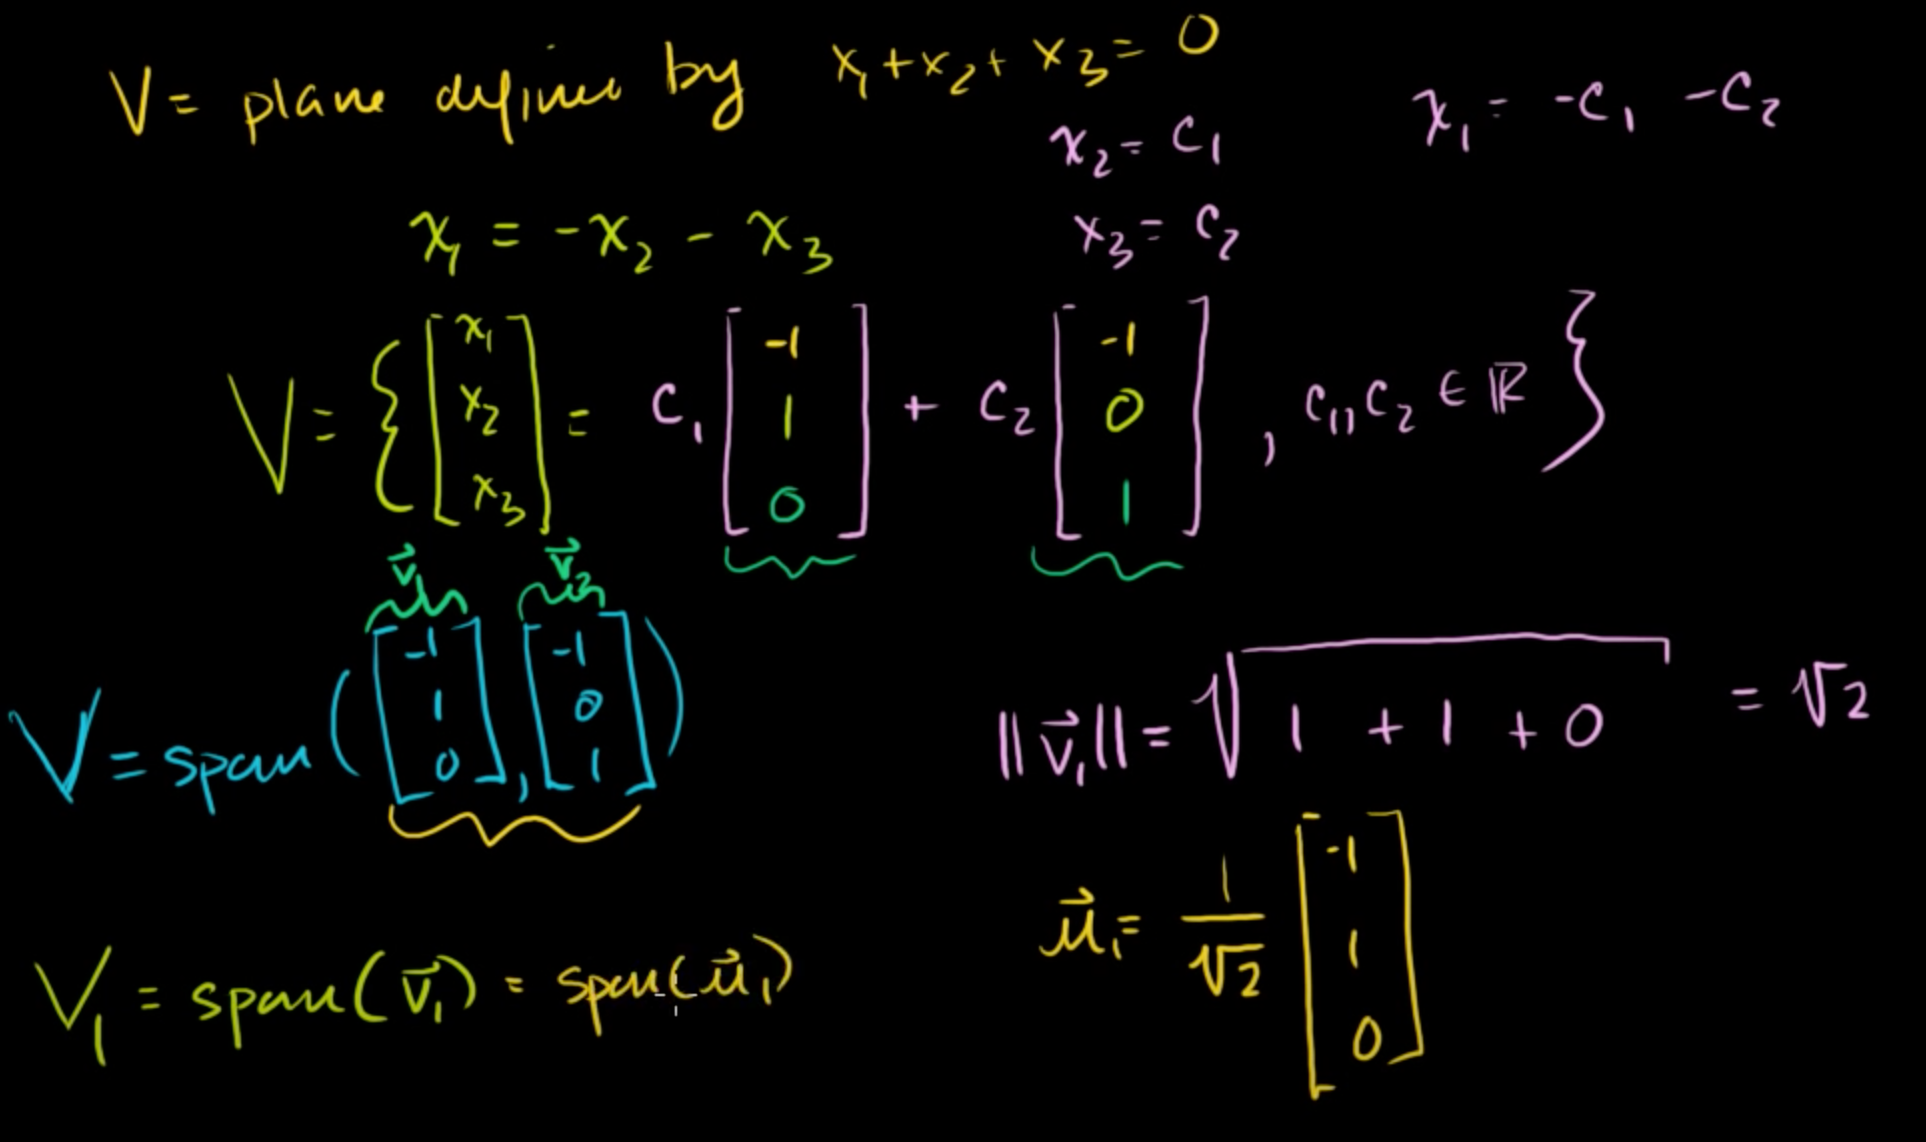 V = plane defined by x₁ + x₂ + x₃ = 0
x₂ = c₁
x₁ = -c₁ - c₂
x₁ = -x₂ - x₃
x₃ = c₂
V = { [x₁ x₂ x₃] = c₁ [-1 1 0] + c₂ [-1 0 1] , c₁, c₂ ∈ ℝ }
v⃗₁ v⃗₂
V = span ( [-1 1 0] , [-1 0 1] )
||v⃗₁|| = √(1 + 1 + 0) = √2
u⃗₁ = 1/√2 [-1 1 0]
V₁ = span(v⃗₁) = span(u⃗₁)